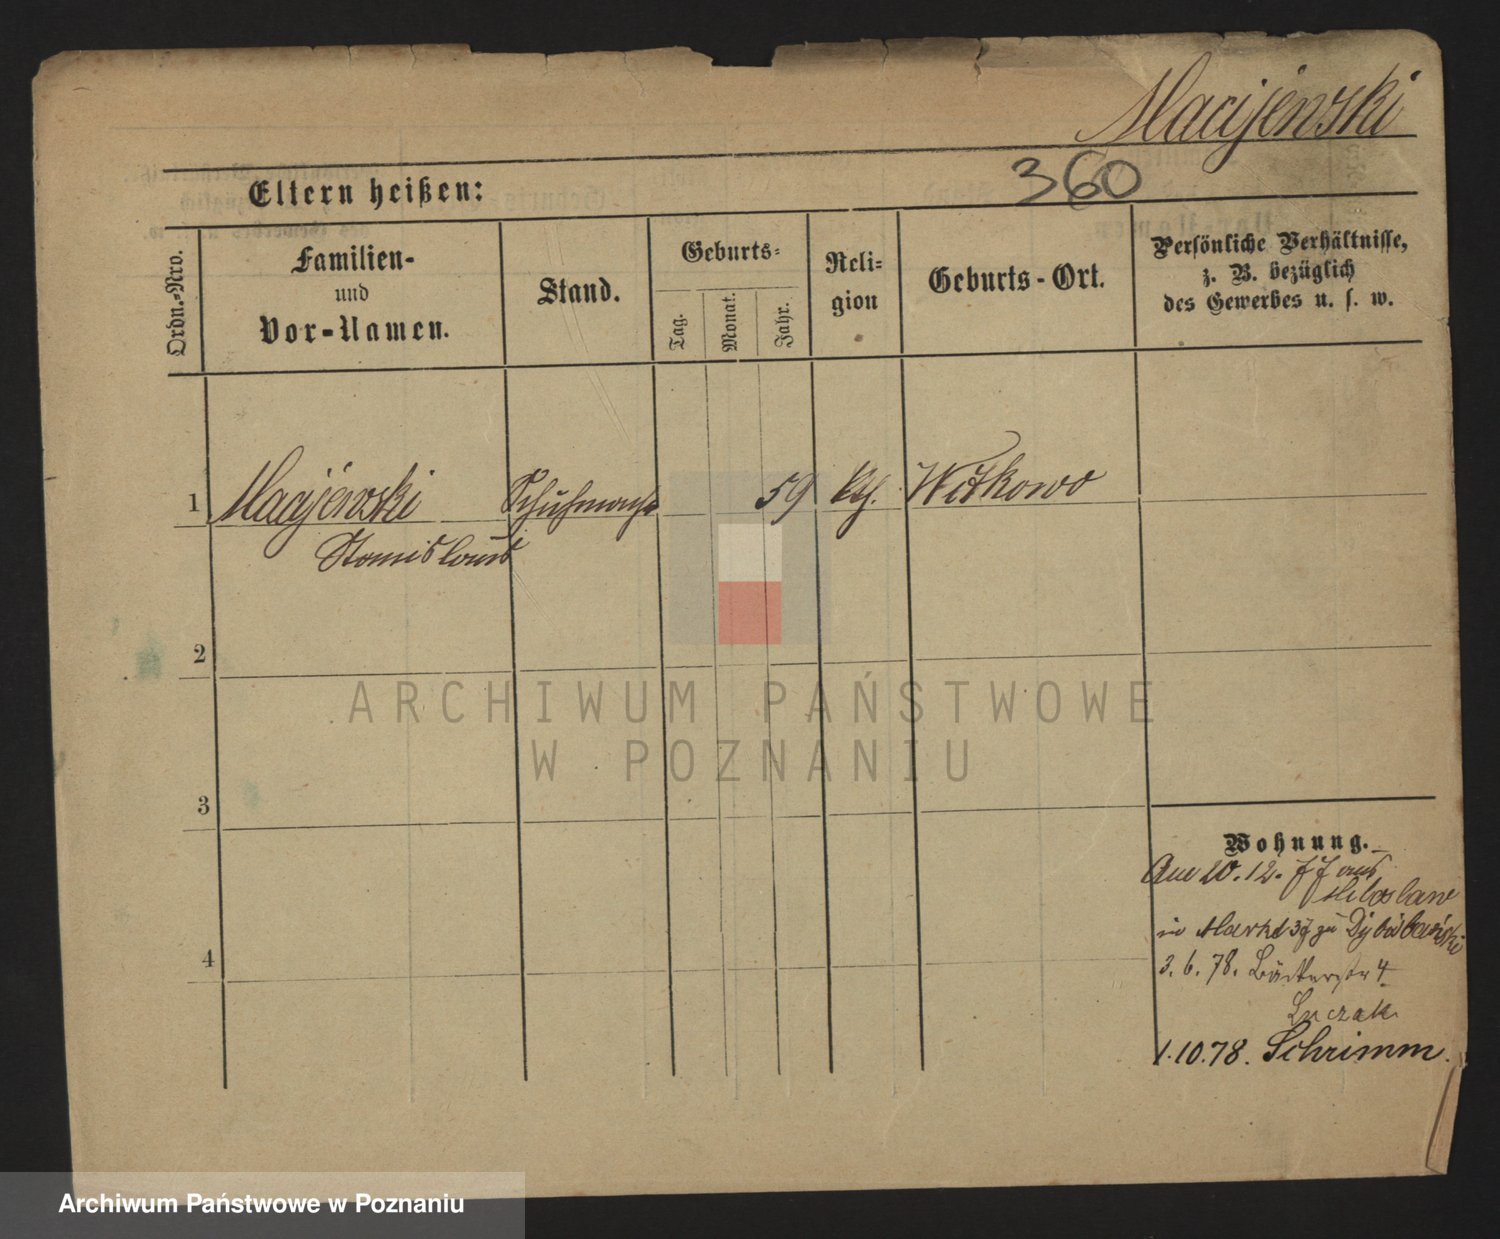 Macijewski
360
Eltern heißen:
Ordn.-Nro.
Familien-
und
Vor-Namen.
Stand.
Geburts-
Tag.
Monat.
Jahr.
Reli-
gion
Geburts-Ort.
Persönliche Verhältnisse,
z. B. bezüglich
des Gewerbes u. s. w.
1 Macijewski Schuhmacher 59 kth. Witkowo
Stanislaus
2
3
4
Wohnung.
20. 12. 77 aus
Miloslaw
in Markt zu
3. 6. 78. Bäckerstr 4
Luczak
1. 10. 78. Schrimm.
ARCHIWUM PAŃSTWOWE
W POZNANIU
Archiwum Państwowe w Poznaniu